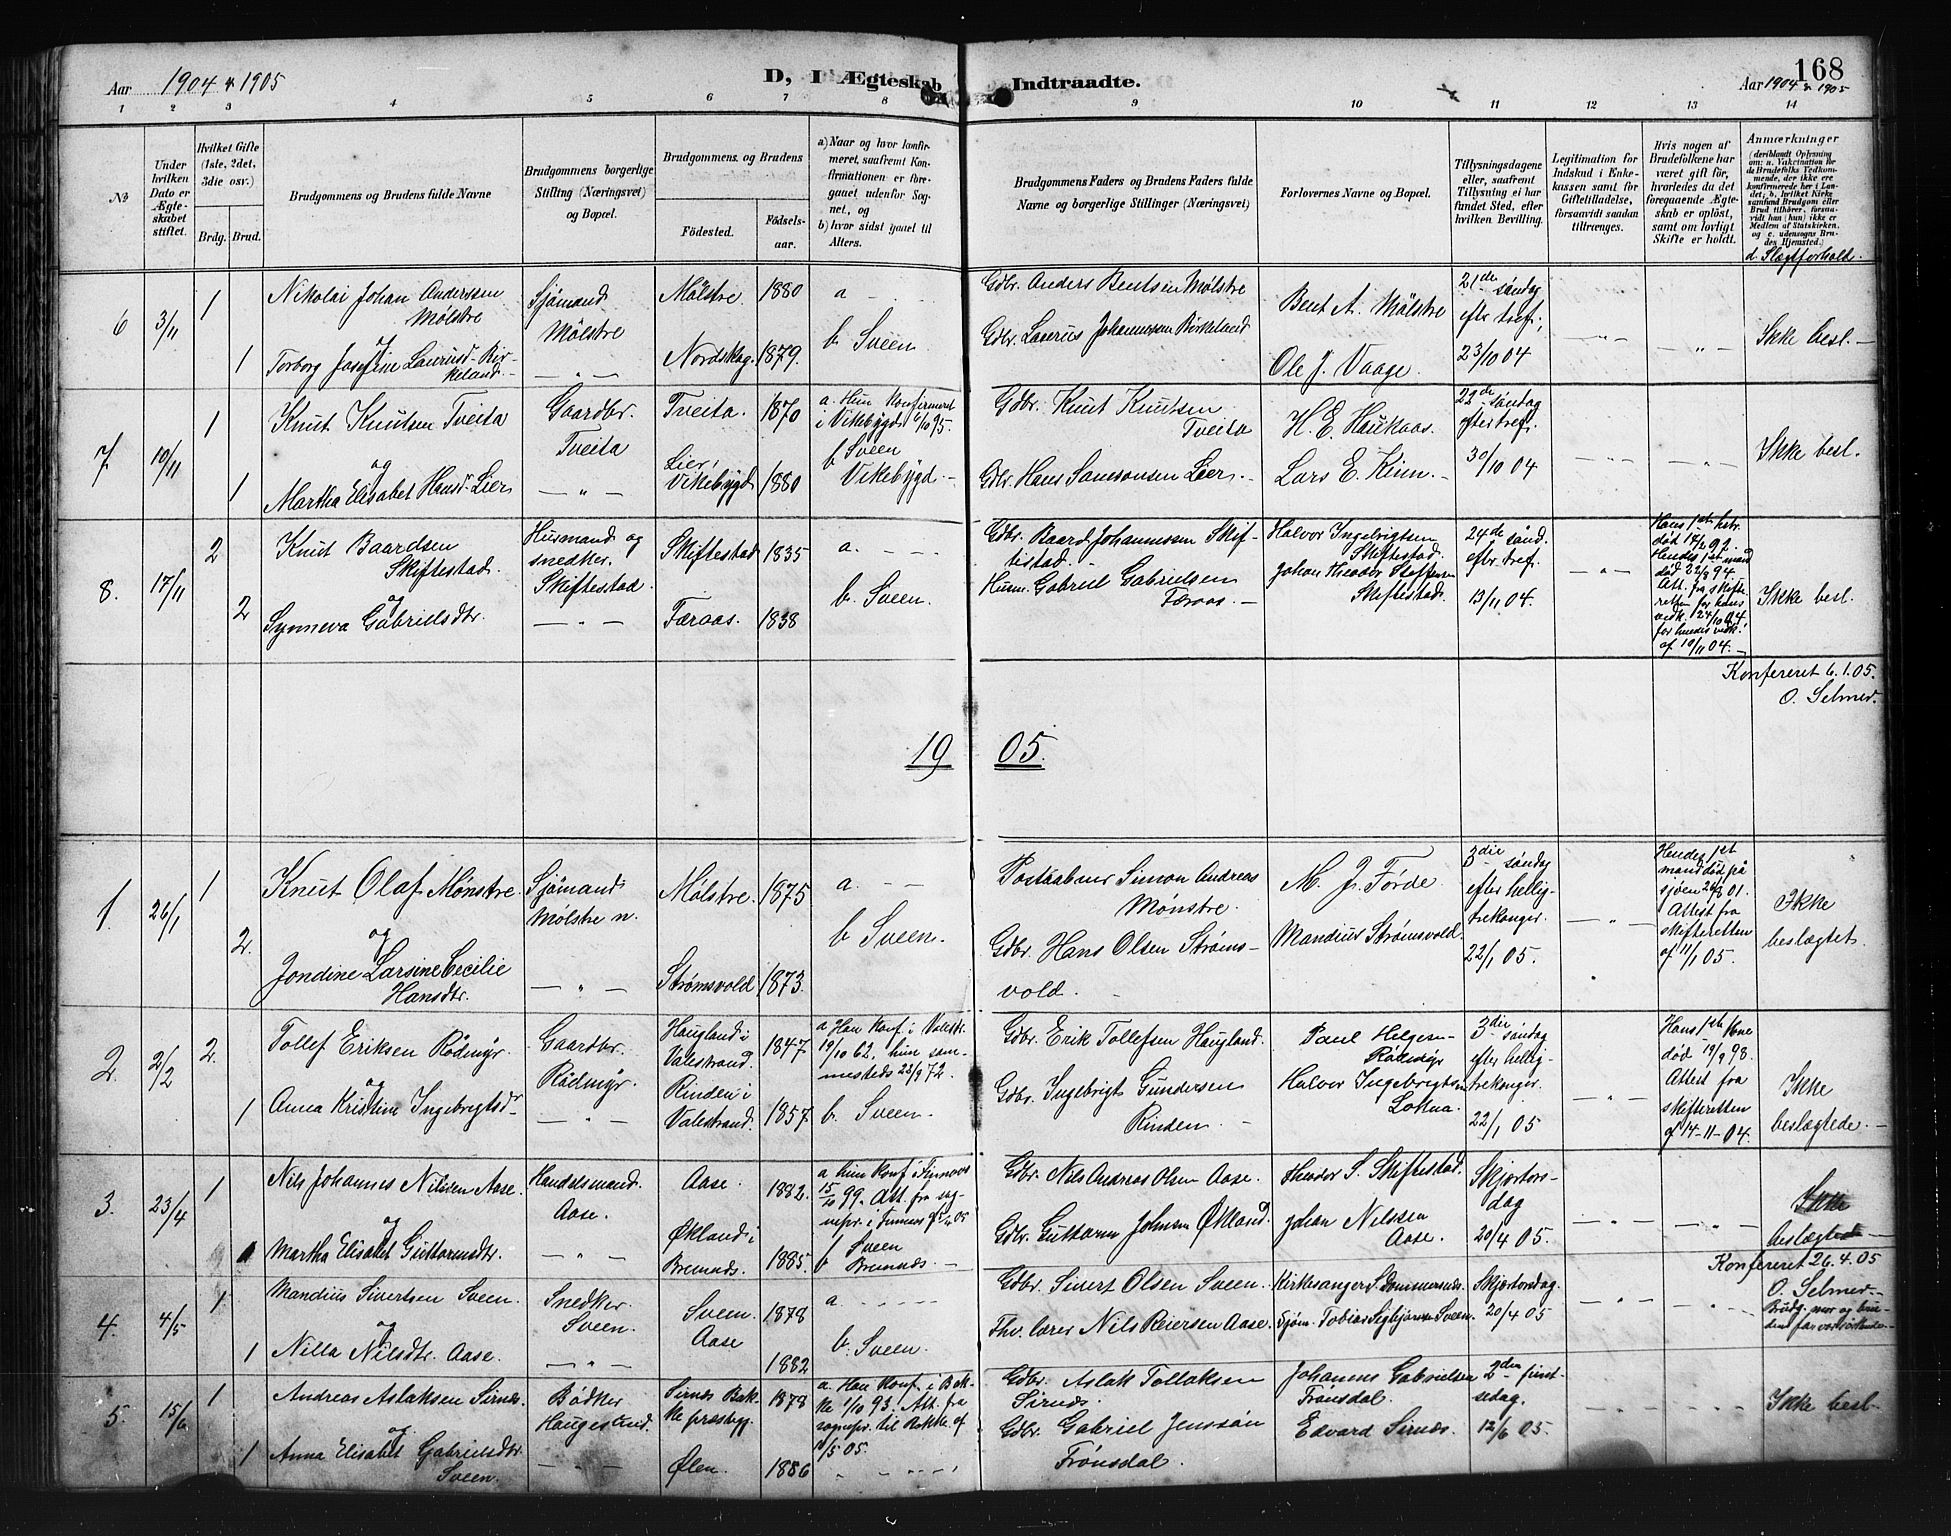 168
Aar 1904 & 1905
D, I Ægteskab Indtraadte.
Aar 1904 & 1905
1 2 3 4 5 6 7 8 9 10 11 12 13 14
No
Under hvilken Dato er Ægteskabet stiftet.
Hvilket Gifte (1ste, 2det, 3die osv.)
Brdg. Brud.
Brudgommens og Brudens fulde Navne
Brudgommens borgerlige Stilling (Næringsvei) og Bopæl.
Brudgommens og Brudens
Födested.
Födselsaar.
a) Naar og hvor konfirmeret, saafremt Konfirmationen er foregaaet udenfor Sognet, og
b) hvor sidst gaaet til Alters.
Brudgommens Faders og Brudens Faders fulde Navne og borgerlige Stillinger (Næringsvei)
Forlovernes Navne og Bopæl.
Tillysningsdagene eller, saafremt Tillysning ei har fundet Sted, efter hvilken Bevilling.
Legitimation for Indskud i Enkekassen samt for Giftetilladelse, forsaavidt saadan tiltrænges.
Hvis nogen af Brudefolkene har været gift för, hvorledes da det foregaaende Ægteskab er oplöst, samt om lovligt Skifte er holdt.
Anmærkninger
(deriblandt Oplysning om: a. Vakcination for de Brudefolks Vedkommende, der ikke ere konfirmerede her i Landet; b. hvilket Kirkesamfund Brudgom eller Brud tilhörer, forsaavidt han (hun) ikke er Medlem af Statskirken, og c. udensogns Brudes Hjemsted.)
d. Slægtforhold.
6 3/11 1
Nikolai Johan Anderssen Mölstre
og
1 Torborg Josefine Laurusd. Birkeland.
Sjömand Mölstre
Mölstre. 1880
Nordskog. 1879.
a - -
b Sveen.
Gdbr. Anders Bentsen Mølstre
Gdbr. Laurus Johannessen Birkeland
Bent A. Mölstre
Ole J. Vaage.
21de søndag efter tref.; 23/10 04
Ikke besl.
7. 10/11 1
Knut Knutsen Tveita
og
1 Martha Elisabet Hansd. Lier
Gaardbr. Tveita
Tveita. 1870
Lier, Vikebygd 1880
a. Hun konfirmeret i Vikebygd 6/10 95.
b Sveen
Vikebygd.
Gdbr. Knut Knutsen Tveita
Gdbr. Hans Samsonsen Lier.
H. E. Haukaas.
Lars E. Kinn.
22de søndag efter tref. 30/10 04
Ikke besl.
8. 17/11 2
Knut Baardsen Skiftestad.
og
2 Synneva Gabrielsdtr.
Husmand og snedker. Skiftestad
Skiftestad 1835
Færaas. 1838
a. - -
b. Sveen.
Gdbr. Baard Johannessen Skiftestad.
Husm. Gabriel Gabrielsen Færaas.
Halvor Ingebrigtsen Skiftestad.
Johan Theodor Steffensen Skiftestad.
24de sönd. eftr. tref. 13/11 04.
Hans 1ste hstr. død 92. Hendes 1ste mand død 22/3 94. Att. fra skifteretten for hans vedk. 24/10 04. for hendes vedk. af 10/11 04.
Ikke besl.
Konfereret 6.1.05.
O. Selmer.
1905.
1. 26/1 1
Knut Olaf Mønstre.
og
2. Jondine Larsine Cecilie Hansdtr.
Sjömand Mølstre n.
Mølstre. 1875
Strømsvold 1873.
a. - -
b Sveen.
Postaabner Simon Andreas Mønstre.
Gdbr. Hans Olsen Strømsvold.
M. J. Førde.
Mandius Strømsvold.
3die søndag efter helligtrekonger. 22/1 05.
Hendes 1ste mand død på sjøen 01. Attest fra skifteretten af 11/1 05.
Ikke beslægtet.
2. 2/2 2.
Tollef Eriksen Rödmyr.
og
1 Anna Kristine Ingebrigtsdr
Gaardbr. Rødmyr.
Haugland i Valestrand. 1847
Rinden i Valestrand. 1857.
a Han konf. i Valestr. 19/10 62. hun sammesteds 22/9 72.
b. Sveen.
Gdbr. Erik Tollefsen Haugland.
Gdbr. Ingebrigt Gundersen Rinden.
Paul Helgesen Rødmyr
Halvor Ingebrigtsen Lokna.
3die søndag efter helligtrekonger. 22/1 05
Hans 1ste kone død 19/9 98. Attest fra skifteretten af 14-11-04.
Ikke beslægtede.
3. 23/4 1
Nils Johannes Nilsen Aase.
og
1 Martha Elisabet Guttormsdtr.
Handelsmand. Aase.
Aase. 1882.
Økland i Bremnes. 1885.
a hun konf. i Finnaas 15/10 99. Att. fra sognepr. i Finnaas 05
b Sveen
Bremnes.
Gdbr. Nils Andreas Olsen Aase.
Gdbr. Guttorm Johnsen Økland.
Theodor S. Skiftestad.
Johan Nilssen Aase.
Skjærtorsdag 20/4 05.
Ikke beslægtede
Konfereret 26.4.05
O. Selmer.
4. 4/5 1
Mandius Sivertsen Sveen.
og
1 Nilla Nilsdtr. Aase.
Snedker. Sveen.
Sveen. 1878
Aase 1882
a - -
b. Sveen.
Gdbr. Sivert Olsen Sveen.
Fhv. lærer Nils Reiersen Aase.
Kirkesanger S. Dommersnes.
Sjöm. Tobias Sigbjørnsen Sveen.
Skjærtorsdag. 20/4 05
Brudg. mor og brudens far var
5 15/6 1
Andreas Aslaksen Sirnes.
og
1 Anna Elisabet Gabrielsdtr. Sveen.
Bødker Haugesund.
Sirnes Bakke præstegj. 1878
Ølen. 1886
a. Han konf. i Bakke 1/10 93. Att. fra sognepr. til Bakke af 11/5 05.
Gdbr. Aslak Tollaksen Sirnes.
Gdbr. Gabriel Jenssön Frönsdal.
Johannes Gabrielsen Frønsdal.
Edvard Sirnes.
2den pintsedag. 12/6 05.
Ikke besl.